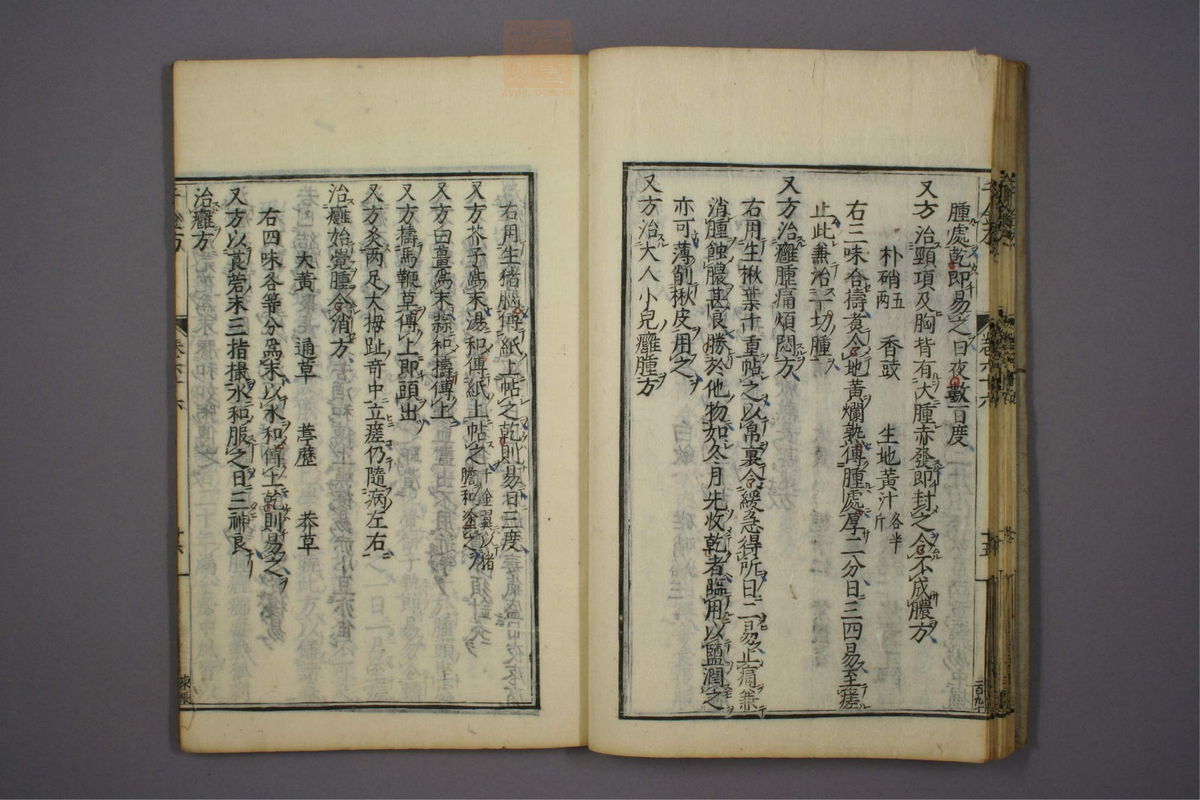 腫處乾即易之日夜數百度
又方治頸項及胸背有大腫赤發即封之令不成膿方
朴硝五兩 香豉 生地黃汁各半斤
右三味合擣煮令地黃爛熟傅腫處厚二分日三四易至瘥
止此兼治一切腫
又方治癰腫痛煩悶方
右用生楸葉十重帖之以帛裹令緩急得所日二易止痛兼
消腫蝕膿甚良勝於他物如冬月先收乾者臨用以鹽潤之
亦可薄削楸皮用之
又方治大人小兒癰腫方
右用生猪腦傅紙上帖之乾則易日三度
又方芥子爲末湯和傅紙上帖之千金翼以猪膽和塗
又方白薑爲末蒜和擣傅上
又方擣馬鞭草傅上即頭出
又方灸兩足大拇趾奇中立瘥仍隨病左右
治癰始覺腫令消方
大黃 通草 葶藶 莽草
右四味各等分爲末以水和傅上乾則易之
又方以莨菪末三指撮水和服之日三神良
治癰方